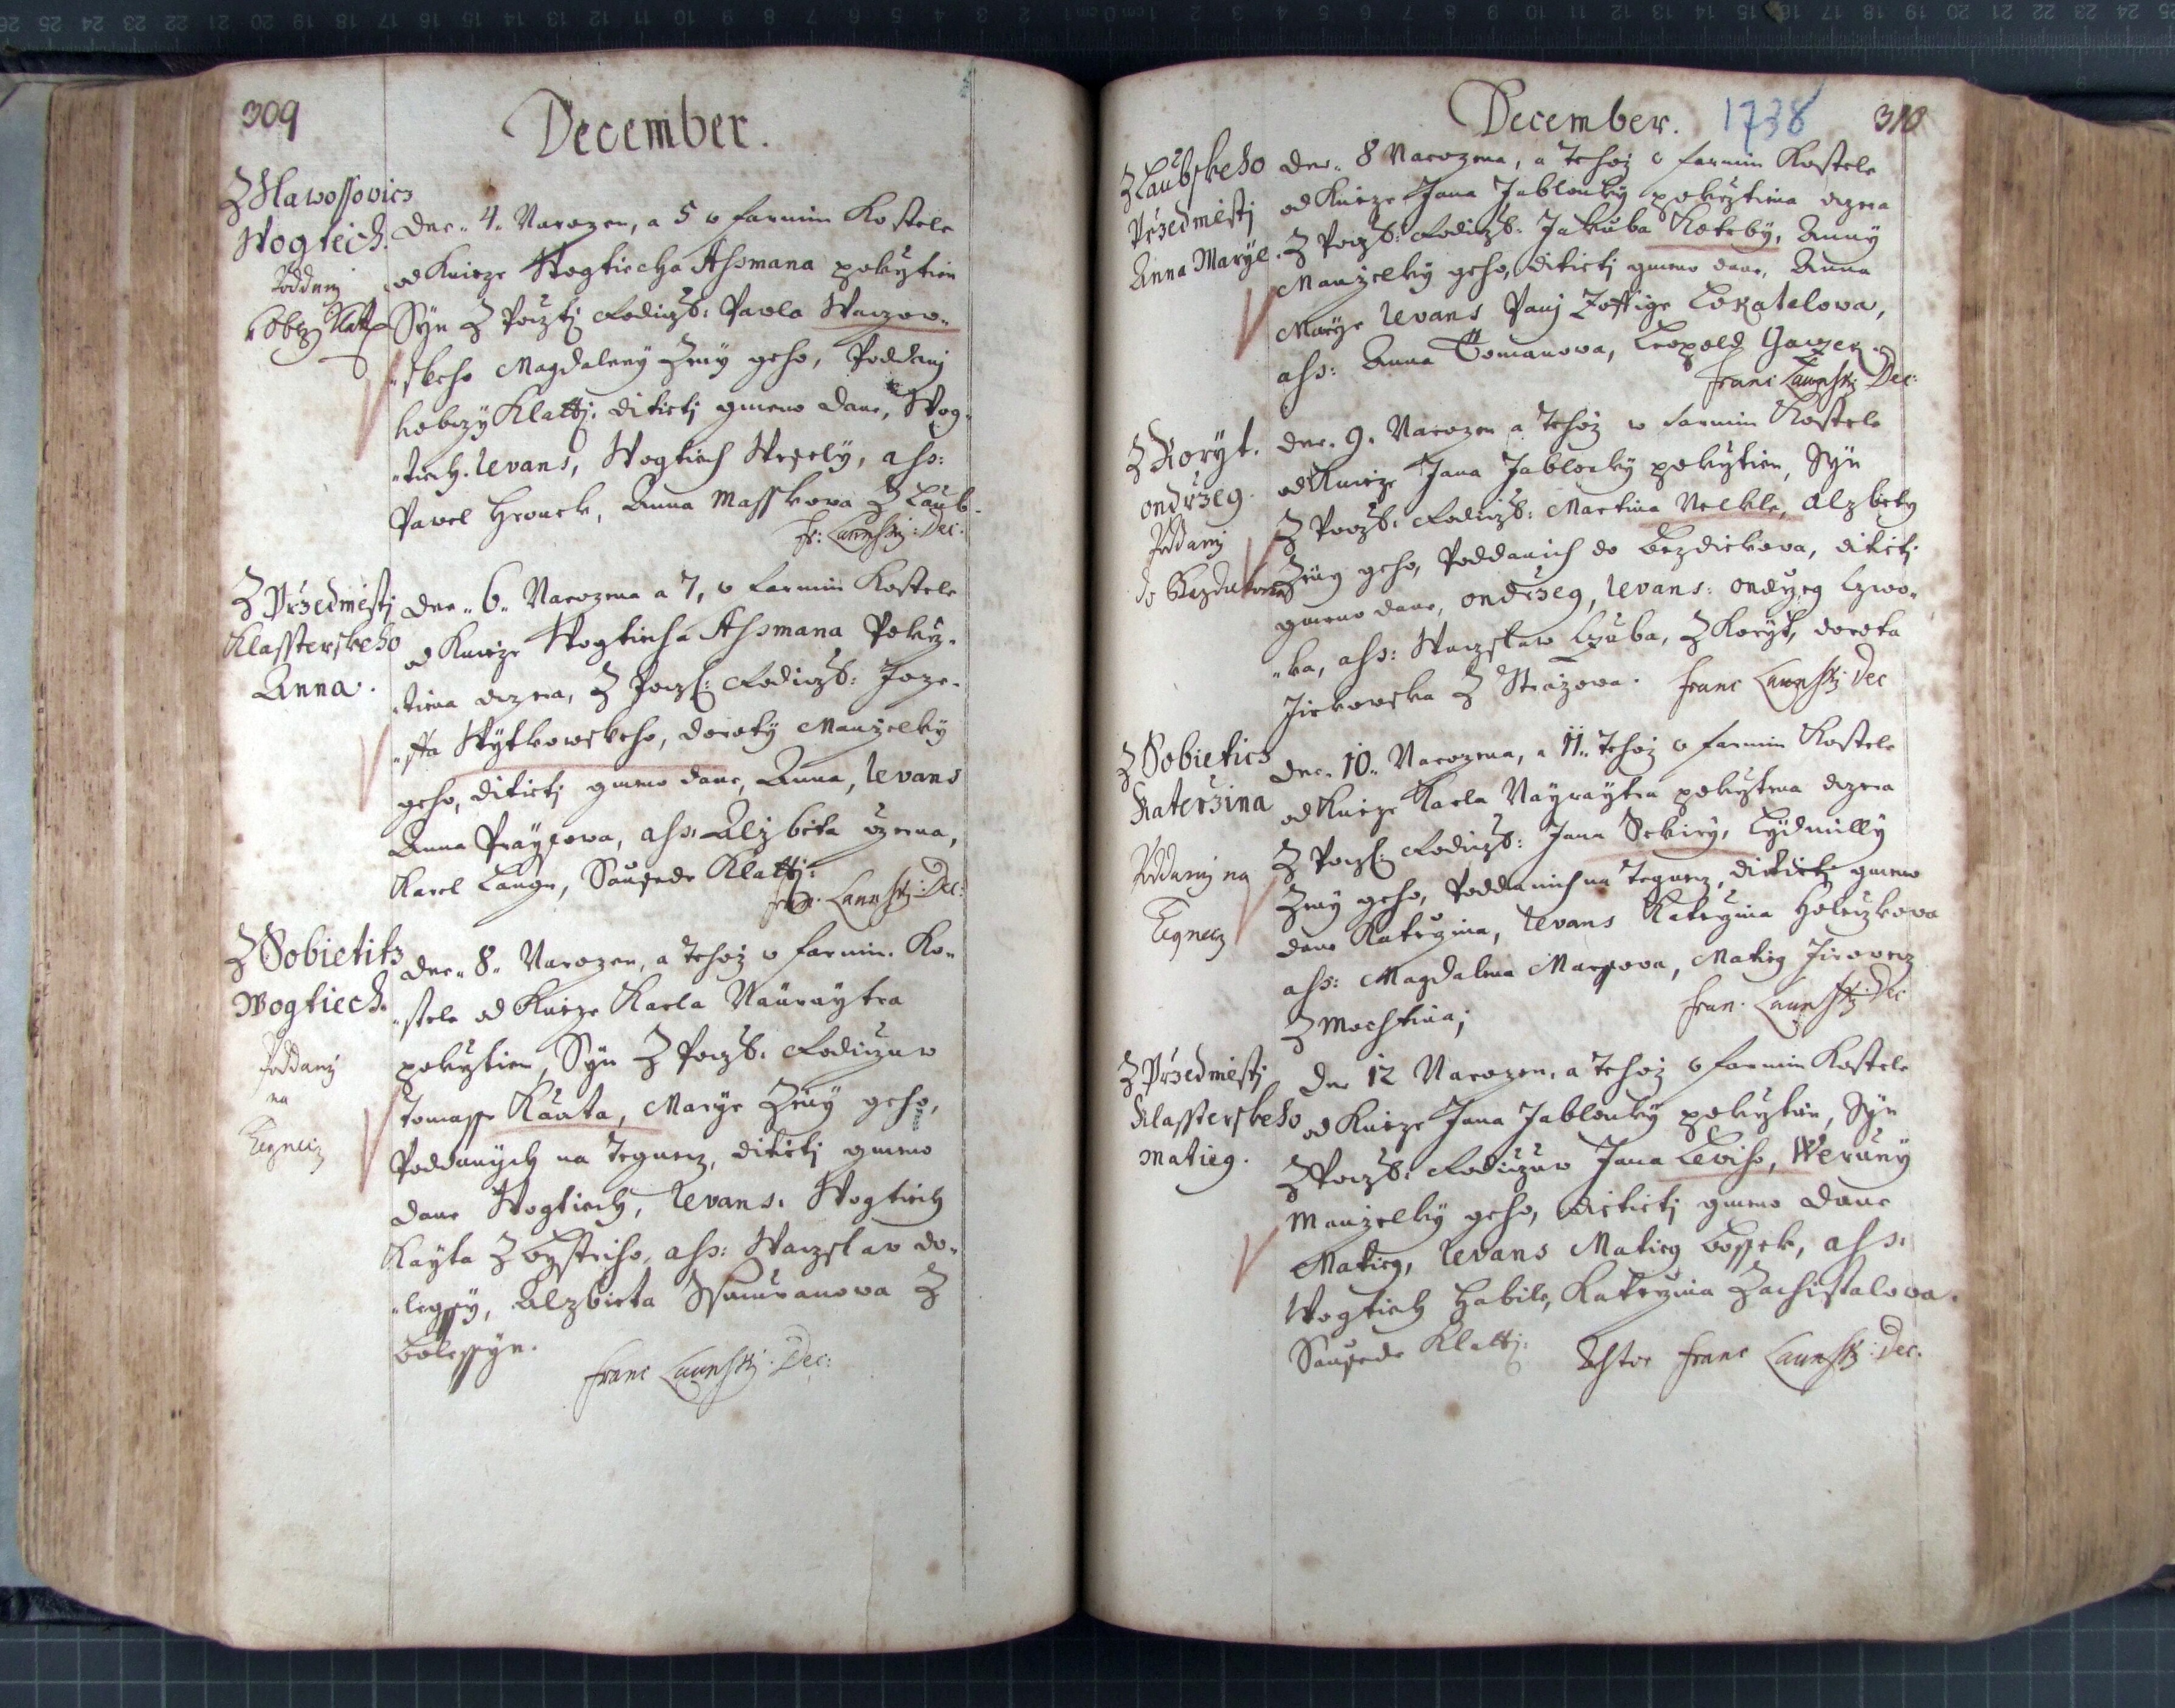 309
December.
Z Slawossovicz
Wogtiech.
Poddanj
k obczy Klatt:
Dne 4. Narozen, a 5 w farnim Kostele
od Knieze Wogtiecha Assmana pokrztien
Syn Z Pocztj Rodiczů: Pawla Warzow-
skeho Magdaleny Zeny geho, Poddanj
k obczy Klattj: ditietj gmeno dane, Wog-
tiech. Levans, Wogtiech Wesely, ass:
Pavel Hronek, Anna Masskova Z Laub.
Fr: Launsky: Dec:
Z Przedmiestj
Klassterskeho
Anna.
Dne 6. Narozena a 7, w farnim Kostele
od Knieze Wogtiecha Assmana Pokrz-
tiena dczera, Z Pocz: Rodiczů: Joze-
ffa Wytkowskeho, doroty Manzelky
geho, ditietj gmeno dane, Anna, Levans
Anna Praysova, ass: Alzbieta
Karel Lange, Sausede Klattj:
Fran. Launsky: Dec:
Z Sobietitz
Wogtiech.
Poddanj
na
Teynecz
Dne 8. Narozen, a Tehoz w farnim. Ko-
stele od Knieze Karla Nayraytra
pokrztien, Syn Z Pocz: Rodiczuw
Tomasse Kauta, Marye Zeny geho,
Poddanych na Tegnecz, ditietj gmeno
dane Wogtiech, Levans. Wogtiech
Kayta Z Bystriho, ass: Waczslaw do-
legssy, Alzbieta Z
Bolessyn.
Franc Launsky: Dec:
December. 1738 310
Z Laubskeho
Przedmiestj
Anna Marye.
Dne 8 Narozena, a Tehoz w farnim Kostele
od Knieze Jana Jablonky pokrztiena dczera
Z Pocz: Rodiczů: Jakuba Koteby, Anny
Manzelky geho, ditietj gmeno dane, Anna
Marye Levans Panj Zoffige Lokatelova,
ass: Anna Tomanova, Leopold
Franc Launsky Dec:
Z Koryt.
Ondrzeg.
Poddanj
do Bezdiekova
Dne. 9. Narozen a Tehoz w farnim Kostele
od Knieze Jana Jablonky pokrztien, Syn
Z Pocz: Rodiczů: Martina Velkle, Alzbiety
Zeny geho, Poddanich do Bezdiekova, ditietj
gmeno dane, Ondrzeg, Levans: Ondrzeg
ka, ass: Waczslaw Czuba, Z Koryt, dorota
Jirkowska Z Strazowa. Franc Launsky Dec
Z Sobieticz
Katerzina
Poddanj na
Tegnecz
Dne. 10. Narozena, a 11. Tehoz w farnim Kostele
od Knieze Karla Nayraytra pokrztena dczera
Z Pocz: Rodiczů: Jana Sekiry, Lydmilly
Zeny geho, Poddanich na Tegnecz, ditietj gmeno
dane Katerzina, Levans Katerzina Holeczkova
ass: Magdalena Maresova, Matieg Jirovecz
Z Mochtina;
Fran. Launsky: Dec
Z Przedmiestj
Klassterskeho
Matieg.
Dne 12 Narozen, a Tehoz w farnim Kostele
od Knieze Jana Jablonky pokrztien, Syn
Z Pocz: Rodiczuw Jana Leviho, Weruny
Manzelky geho, ditietj gmeno dane
Matieg, Levans Matieg Bossek, ass:
Wogtiech Habile, Katerzina Zachistalova.
Sausede Klattj: Testor Franc Launsky: Dec.